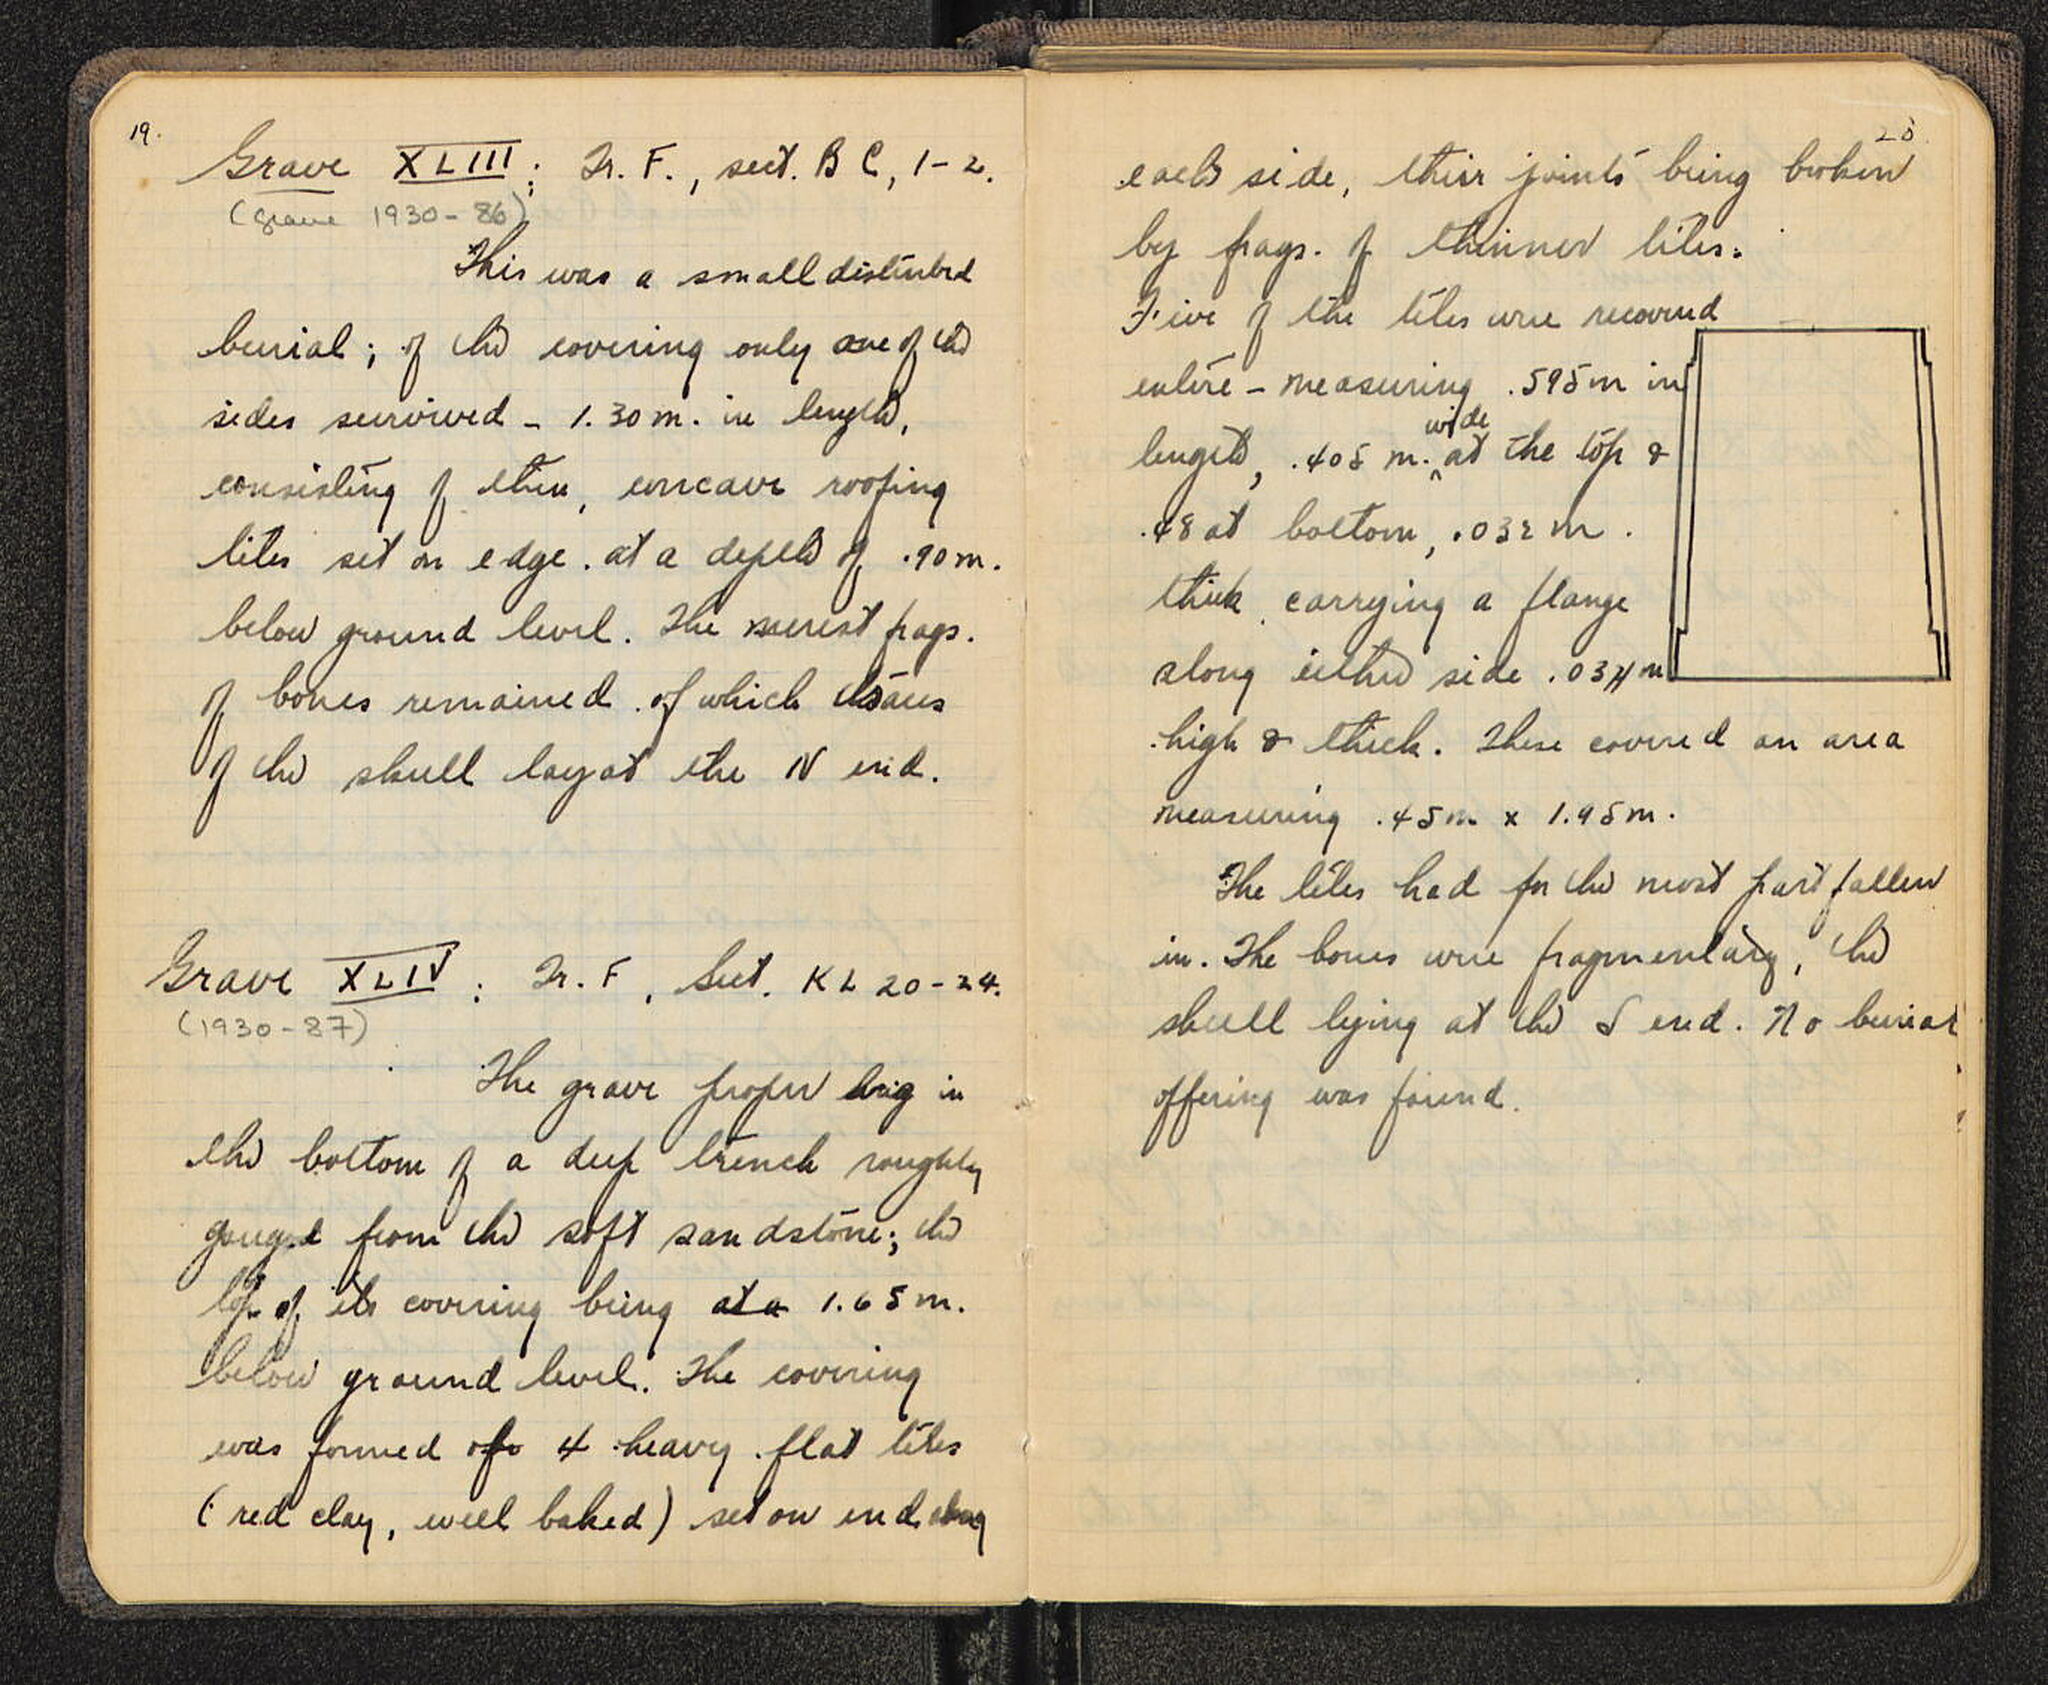 19.
Grave XLIII; Tr. F., sect. B C, 1-2.
(grave 1930-86)
This was a small disturbed
burial; of the covering only one of the
sides survived - 1.30 m. in length,
consisting of thin, concave roofing
tiles set on edge. at a depth of .90 m.
below ground level. The merest frags.
of bones remained of which traces
of the skull lay at the N end.
Grave XLIV; Tr. F, Sect. KL 20-24.
(1930-87)
The grave proper lay in
the bottom of a deep trench roughly
gouged from the soft sandstone; the
top of its covering being at a 1.65 m.
below ground level. The covering
was formed of 4 heavy flat tiles
(red clay, well baked) set on end along
20
each side, their joints being broken
by frags. of thinner tiles.
Five of the tiles were recovered
entire - measuring .595 m in
length, .405 m. wide at the top &
.48 at bottom, .032 m.
thick carrying a flange
along either side m
high & thick. These covered an area
measuring .45 m x 1.95 m.
The tiles had for the most part fallen
in. The bones were fragmentary, the
skull lying at the S end. No burial
offering was found.